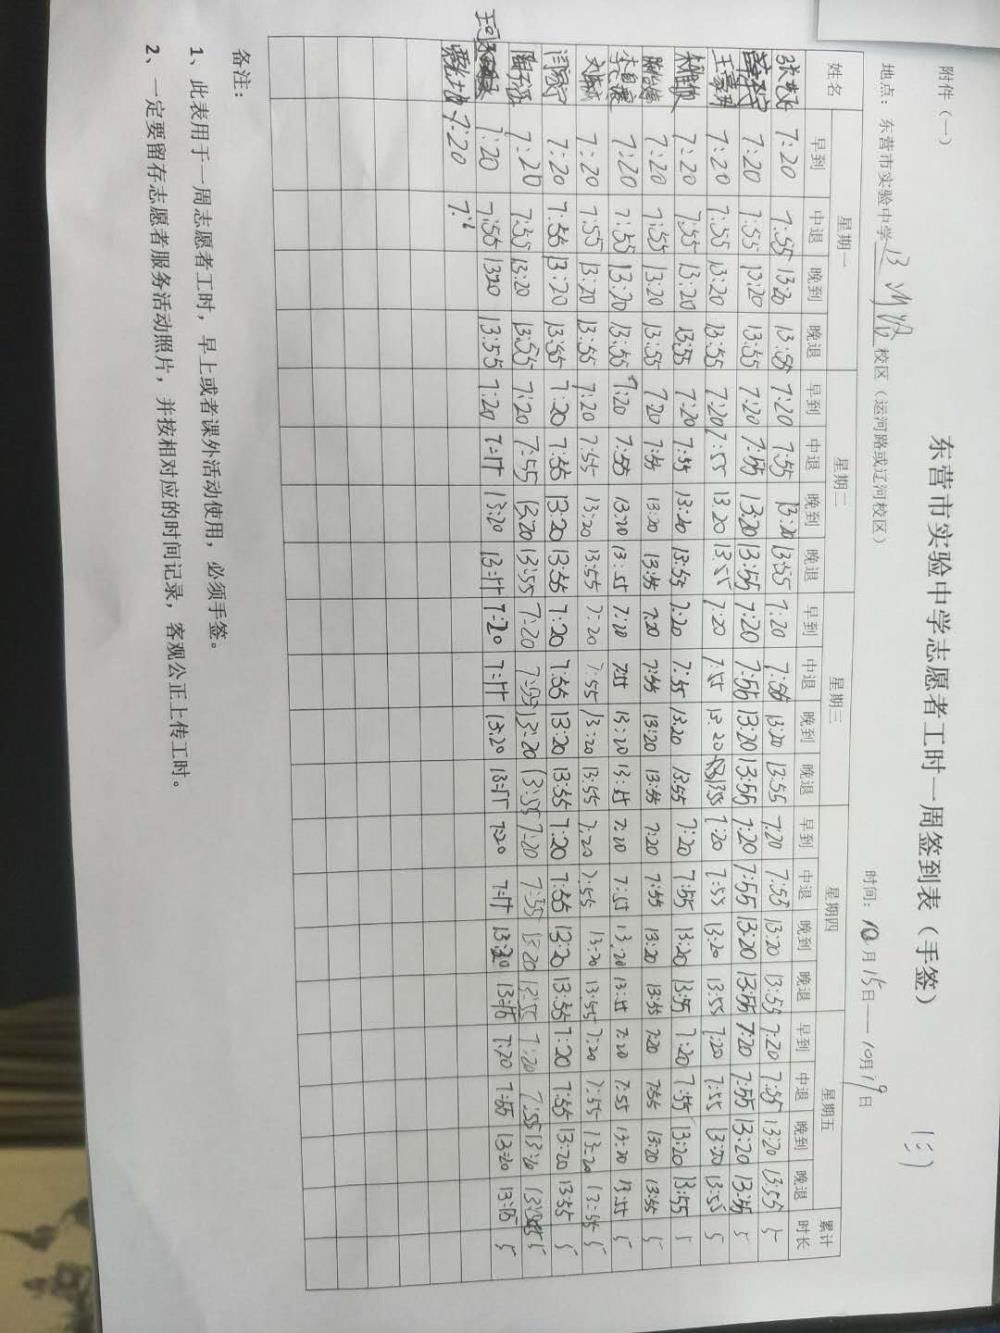 附件（一）
东营市实验中学志愿者工时一周签到表（手签）
地点：东营市实验中学 校区（运河路或辽河校区） 时间：10月15日——10月19日
姓名 星期一 星期二 星期三 星期四 星期五 累计时长
早到 中退 晚到 晚退 早到 中退 晚到 晚退 早到 中退 晚到 晚退 早到 中退 晚到 晚退 早到 中退 晚到 晚退
7:20 7:55 13:20 13:55 7:20 7:55 13:20 13:55 7:20 7:55 13:20 13:55 7:20 7:55 13:20 13:55 7:20 7:55 13:20 13:55 5
7:20 7:55 13:20 13:55 7:20 7:55 13:20 13:55 7:20 7:55 13:20 13:55 7:20 7:55 13:20 13:55 7:20 7:55 13:20 13:55 5
7:20 7:55 13:20 13:55 7:20 7:55 13.20 13:55 7:20 7:55 13:20 13:55 7:20 7:55 13:20 13:55 7:20 7:55 13:20 13:55 5
7:20 7:55 13:20 13:55 7:20 7:55 13:20 13:55 7:20 7:55 13:20 13:55 7:20 7:55 13:20 13:55 7:20 7:55 13:20 13:55 5
7:20 7:55 13:20 13:55 7:20 7:55 13:20 13:55 7:20 7:55 13:20 13:55 7:20 7:55 13:20 13:55 7:20 7:55 13:20 13:55 5
7:20 7:55 13:20 13:55 7:20 7:55 13:20 13:55 7:20 7:55 13:20 13:55 7:20 7:55 13:20 13:55 7:20 7:55 13:20 13:55 5
7:20 7:55 13:20 13:55 7:20 7:55 13:20 13:55 7:20 7:55 13:20 13:55 7:20 7:55 13:20 13:55 7:20 7:55 13:20 13:55 5
7:20 7:55 13:20 13:55 7:20 7:55 13:20 13:55 7:20 7:55 13:20 13:55 7:20 7:55 13:20 13:55 7:20 7:55 13:20 13:55 5
7:20 7:55 13:20 13:55 7:20 7:55 13:20 13:55 7:20 7:55 13:20 13:55 7:20 7:55 13:20 13:55 7:20 7:55 13:20 5
7:20 7:55 1320 13:55 7:20 7:55 13:20 13:55 7:20 7:55 13:20 13:55 7:20 7:55 13:20 13:55 7:20 7:55 13:20 13:55 5
7:20
备注：
1、此表用于一周志愿者工时，早上或者课外活动使用，必须手签。
2、一定要留存志愿者服务活动照片，并按相对应的时间记录，客观公正上传工时。